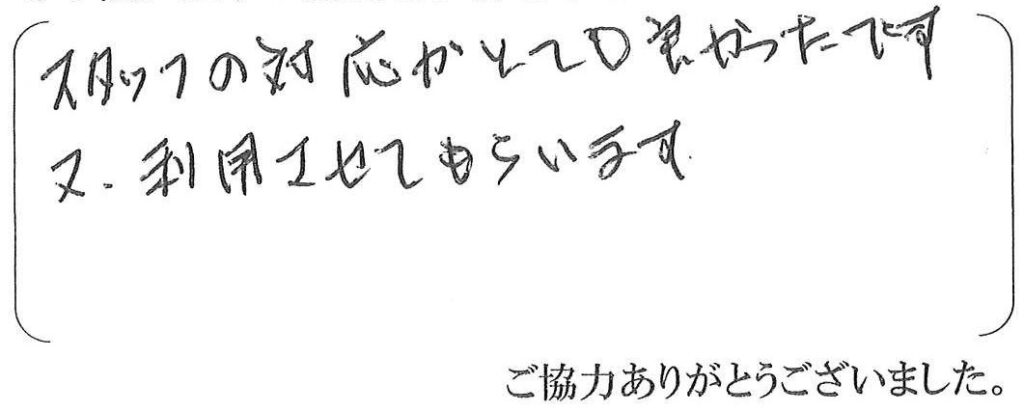 スタッフの対応がとても良かったです
又、利用させてもらいます
ご協力ありがとうございました。